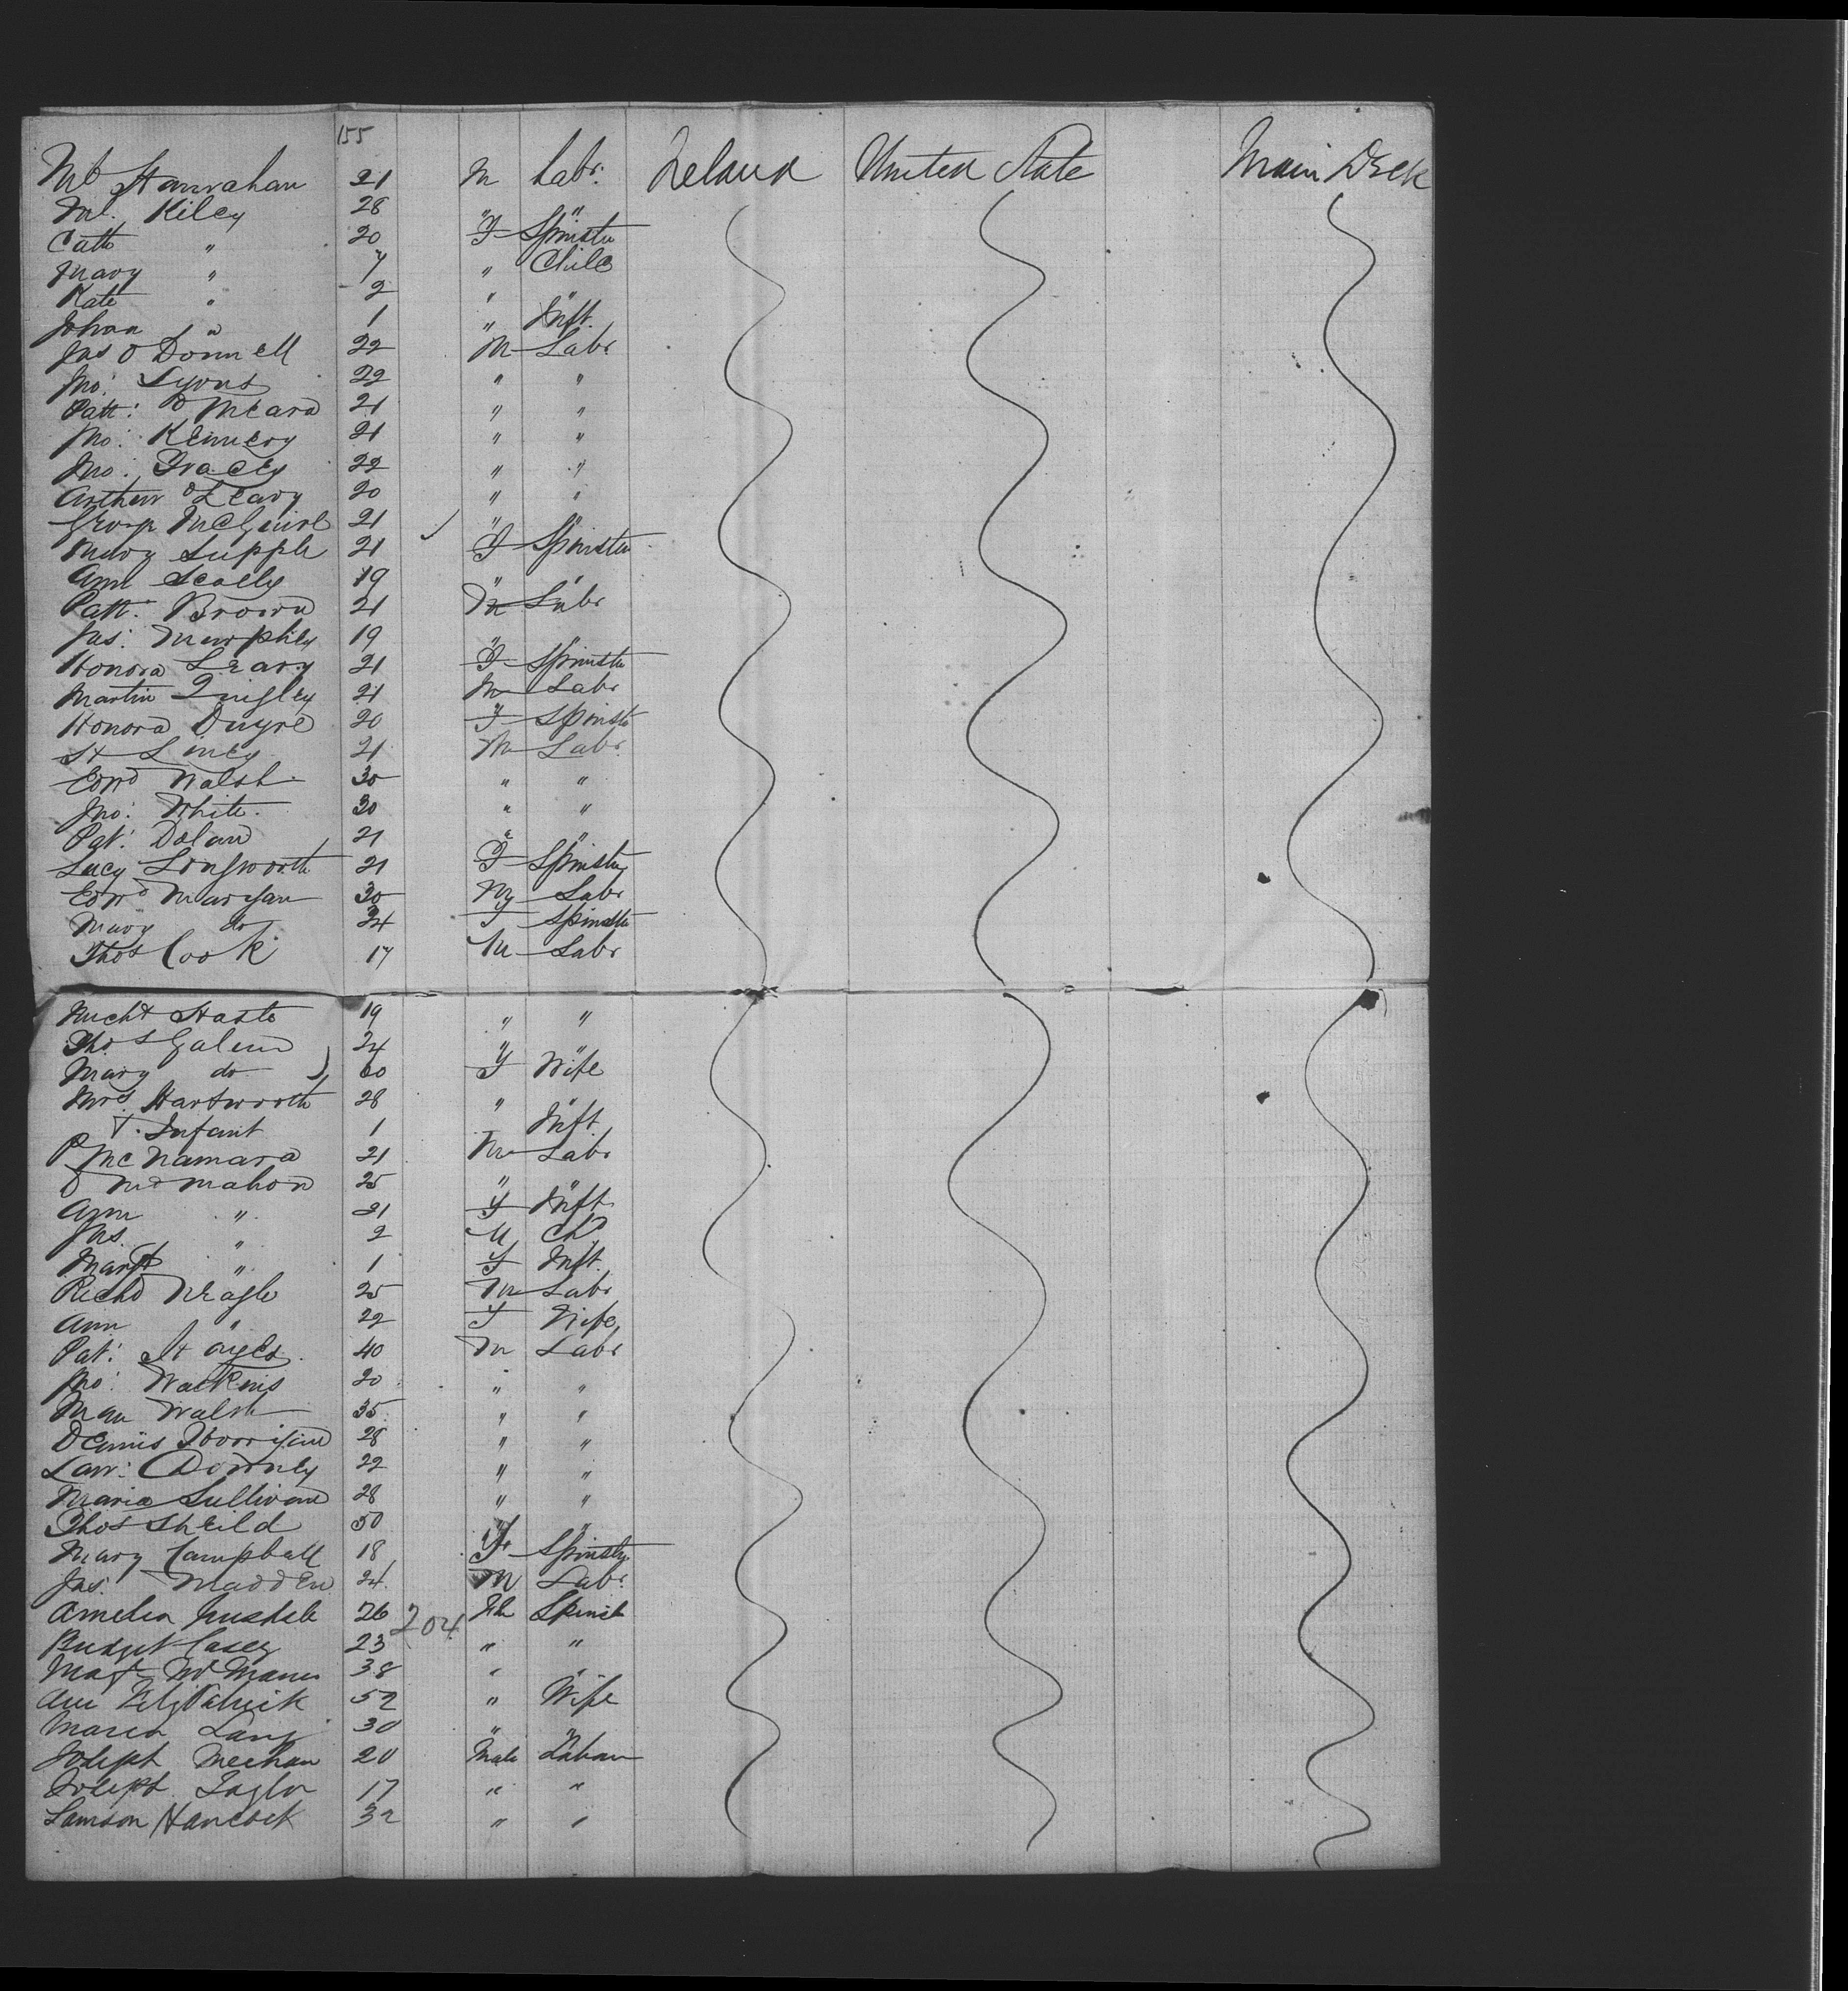 155
Ml Hanrahan 21 M Labr. Ireland United State Main Deck
Ml. Kiley 28 " "
Cath " 20 F Spinster
Mary " 7 " Child
Kate " 2 " "
Johan " 1 " Inft.
Jas O Donnell 22 M Labr
Jno: Lyons 22 " "
Patt: O Meara 21 " "
Jno: Kennedy 21 " "
Jno: Tracey 22 " "
Arthur O Leary 20 " "
George McGuire 21 " "
Mary Supple 21 F Spinster
Ann Scally 19 " "
Patt: Brown 21 M Labr
Jas: Murphy 19 " "
Honora Leary 21 F Spinster
Martin Quigley 21 M Labr
Honora Dwyre 20 F Spinst
21 M Labr
Edwd Walsh 30 " "
Jno: White 30 " "
Pat: Dolan 21 " "
Lucy Longworth 21 F Spinster
Edwd 30 M Labr
Mary do 34 F Spinster
Thos Cook 17 M Labr
Michl 19 " "
Thos 24 " "
Mary do F Wife
Mrs Hartworth 28 " "
+ Infant 1 Inft
P McNamara 21 M Labr
McMahon 25 " "
Ann " 21 F Inft
Jas " 2 M Chd
Margt " 1 F Inft.
Richd Neagle 25 M Labr
Ann " 22 F Wife
Pat: Hayes 40 M Labr
Jno: Watkins 20 " "
Walsh 35 " "
Dennis 28 " "
Law: Downey 22 " "
Maria Sullivan 28 " "
Thos Sheild 50 " "
Mary Campbell 18 F Spinster
Jas: Madden 24 M Labr
Amelia 26 204 Spinst
Bridget Casey 23 " "
Magt McManus 38 " "
Ann Fitzpatrick 52 " Wife
Maria Lang 30 " "
Joseph Meehan 20 Male Labour
Joseph Taylor 17 " "
Samson Hancock 32 " "